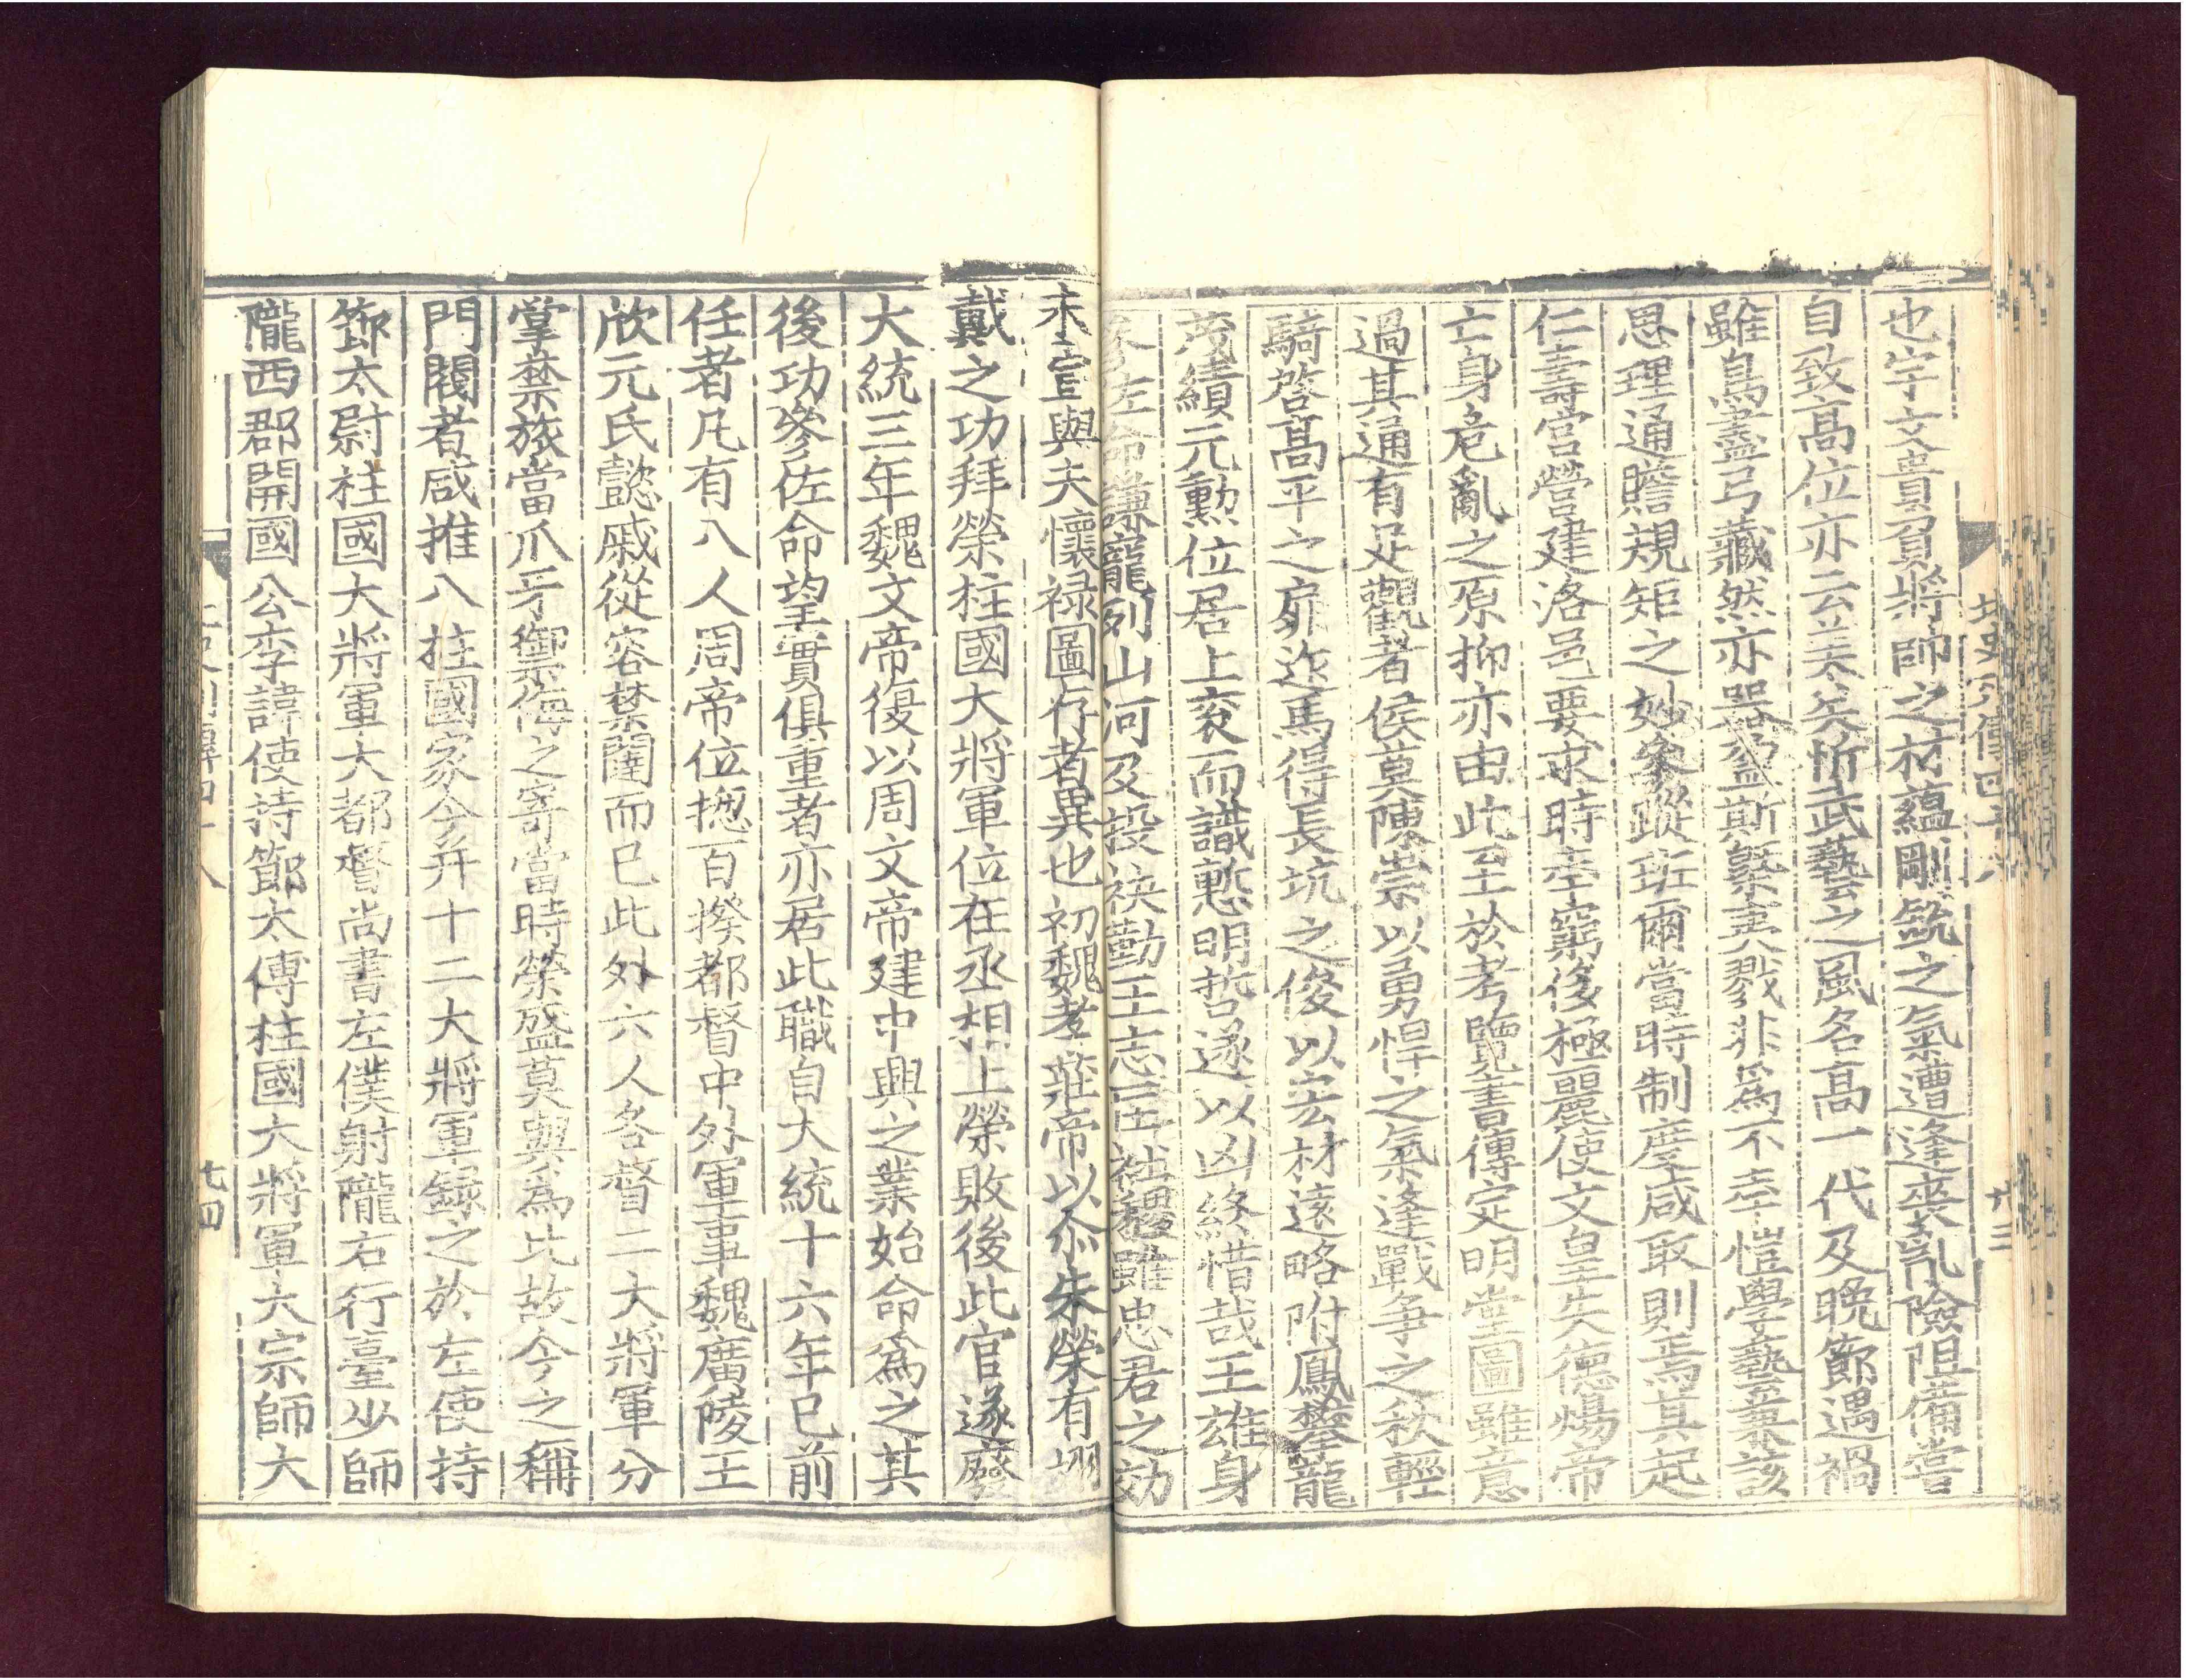 也宇文貴負將帥之材蘊剛銳之氣遭逢喪亂險阻備嘗
自致高位亦云美矣忻武藝之風名高一代及晚節遇禍
雖鳥盡弓藏然亦器盈斯槩夷戮非爲不幸愷學藝兼該
思理通贍規矩之妙參蹤班爾當時制度咸取則焉其起
仁壽宮營建洛邑要求時幸窮侈極麗使文皇失德煬帝
亡身危亂之原抑亦由此至於考覽書傳定明堂圖雖意
過其通有足觀者侯莫陳崇以勇悍之氣逢戰爭之秋輕
騎啓高平之扉迮馬得長坑之俊以宏材遠略附鳳攀龍
茂績元勳位居上衮而識慙明哲遂以凶終惜哉王雄身
參佐命謙寵列山河及投袂勤王志匡社稷雖忠君之効
未宣與夫懷祿圖存者異也初魏孝莊帝以尒朱榮有翊
戴之功拜榮柱國大將軍位在丞相上榮敗後此官遂廢
大統三年魏文帝復以周文帝建中興之業始命爲之其
後功參佐命望實俱重者亦居此職自大統十六年已前
任者凡有八人周帝位揔百揆都督中外軍事魏廣陵王
欣元氏懿戚從容禁闈而已此外六人各督二大將軍分
掌禁旅當爪牙禦侮之寄當時榮盛莫與爲比故今之稱
門閥者咸推八柱國家今并十二大將軍錄之於左使持
節太尉柱國大將軍大都督尚書左僕射隴右行臺少師
隴西郡開國公李諱使持節太傅柱國大將軍大宗師大
北史列傳四十八
十三
十四